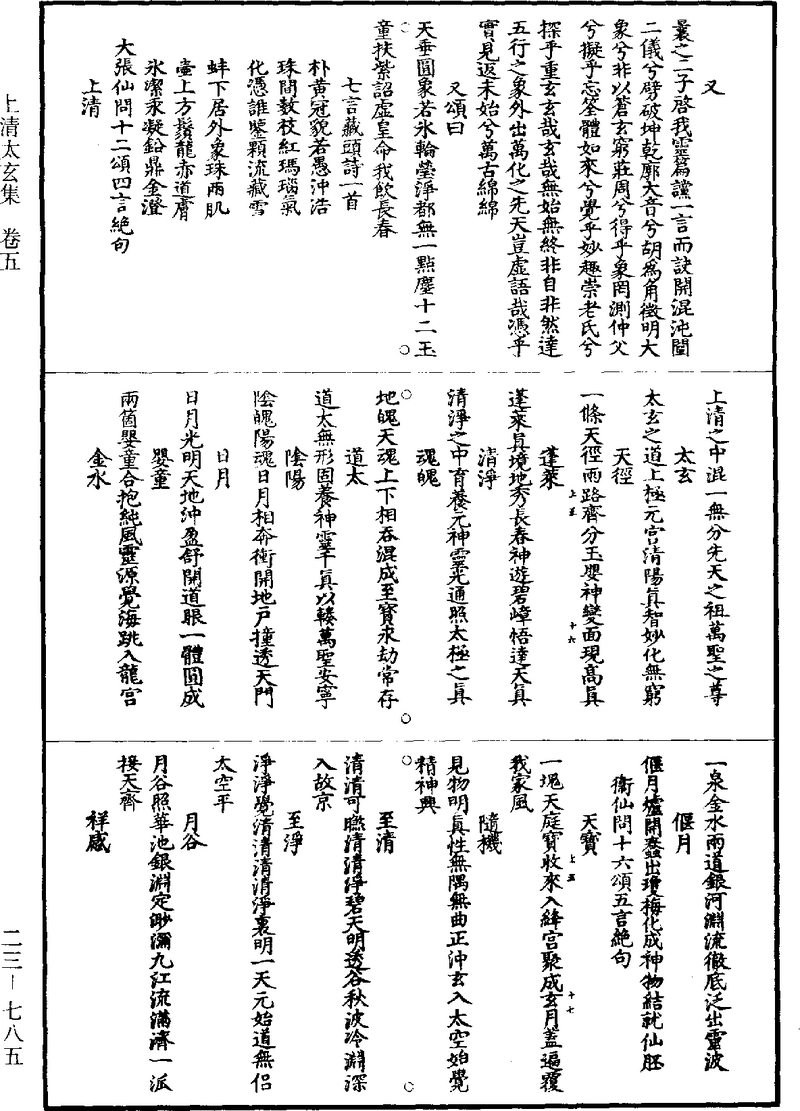 上清太玄集　卷五
二三—七八五
又
曩之二子啓我靈篇讜一言而訣開混沌闡
二儀兮劈破坤乾廓大音兮胡爲角徵明大
象兮非以蒼玄窮莊周兮得乎象罔測仲父
兮擬乎忘筌體如來兮覺乎妙趣崇老氏兮
探乎重玄玄哉玄哉無始無終非自非然達
五行之象外出萬化之先天豈虛語哉憑乎
實見返未始兮萬古綿綿
又頌曰
天垂圓象若氷輪瑩淨都無一點塵十二玉
童扶紫詔虛皇命我飲長春
七言藏頭詩一首
朴黃冠貌若愚沖浩
珠問數枝紅瑪瑙氣
化憑誰鑒顆流藏雪
蚌下居外象珠雨肌
壺上方鬚龍赤道膚
氷潔汞凝鉛鼎金澄
大張仙問十二頌四言絕句
上清
上清之中混一無分先天之祖萬聖之尊
太玄
太玄之道上極元宫清陽真智妙化無窮
天徑
一條天徑兩路齊分玉嬰神變面現高真
蓬萊
蓬萊真境地秀長春神遊碧嶂悟達天真
清淨
清淨之中育養元神靈光通照太極之真
魂魄
地魄天魂上下相吞混成至寶永劫常存
道太
道太無形固養神靈千真以轃萬聖安寧
陰陽
陰魄陽魂日月相奔衝開地戸撞透天門
日月
日月光明天地沖盈舒開道眼一體圓成
嬰童
兩箇嬰童合抱純風靈源覺海跳入龍宫
金水
一泉金水兩道銀河淵流徹底泛出靈波
偃月
偃月爐開蠢出瓊梅化成神物結就仙胚
衛仙問十六頌五言絕句
天寶
一塊天庭寶收來入絳宫聚成玄月蓋遍覆
我家風
隨機
見物明真性無隅無曲正沖玄入太空始覺
精神興
至清
清清可瞧清清淨碧天明透谷秋波冷淵深
入故京
至淨
淨淨覺清清清清淨裏明一天元始道無侣
太空平
月谷
月谷照華池銀淵定渺瀰九江流滿濟一派
接天齊
祥感